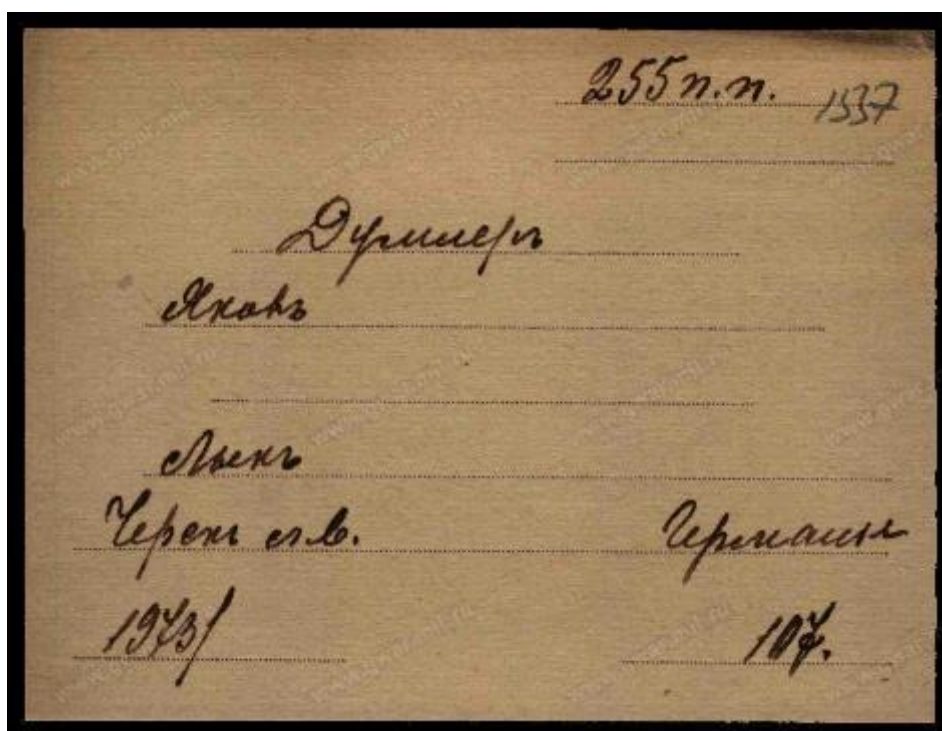 255 п.п. 1537
Думлеръ
Яковъ
Лыкъ
Черскъ л.в. Германія
1973/ 107.